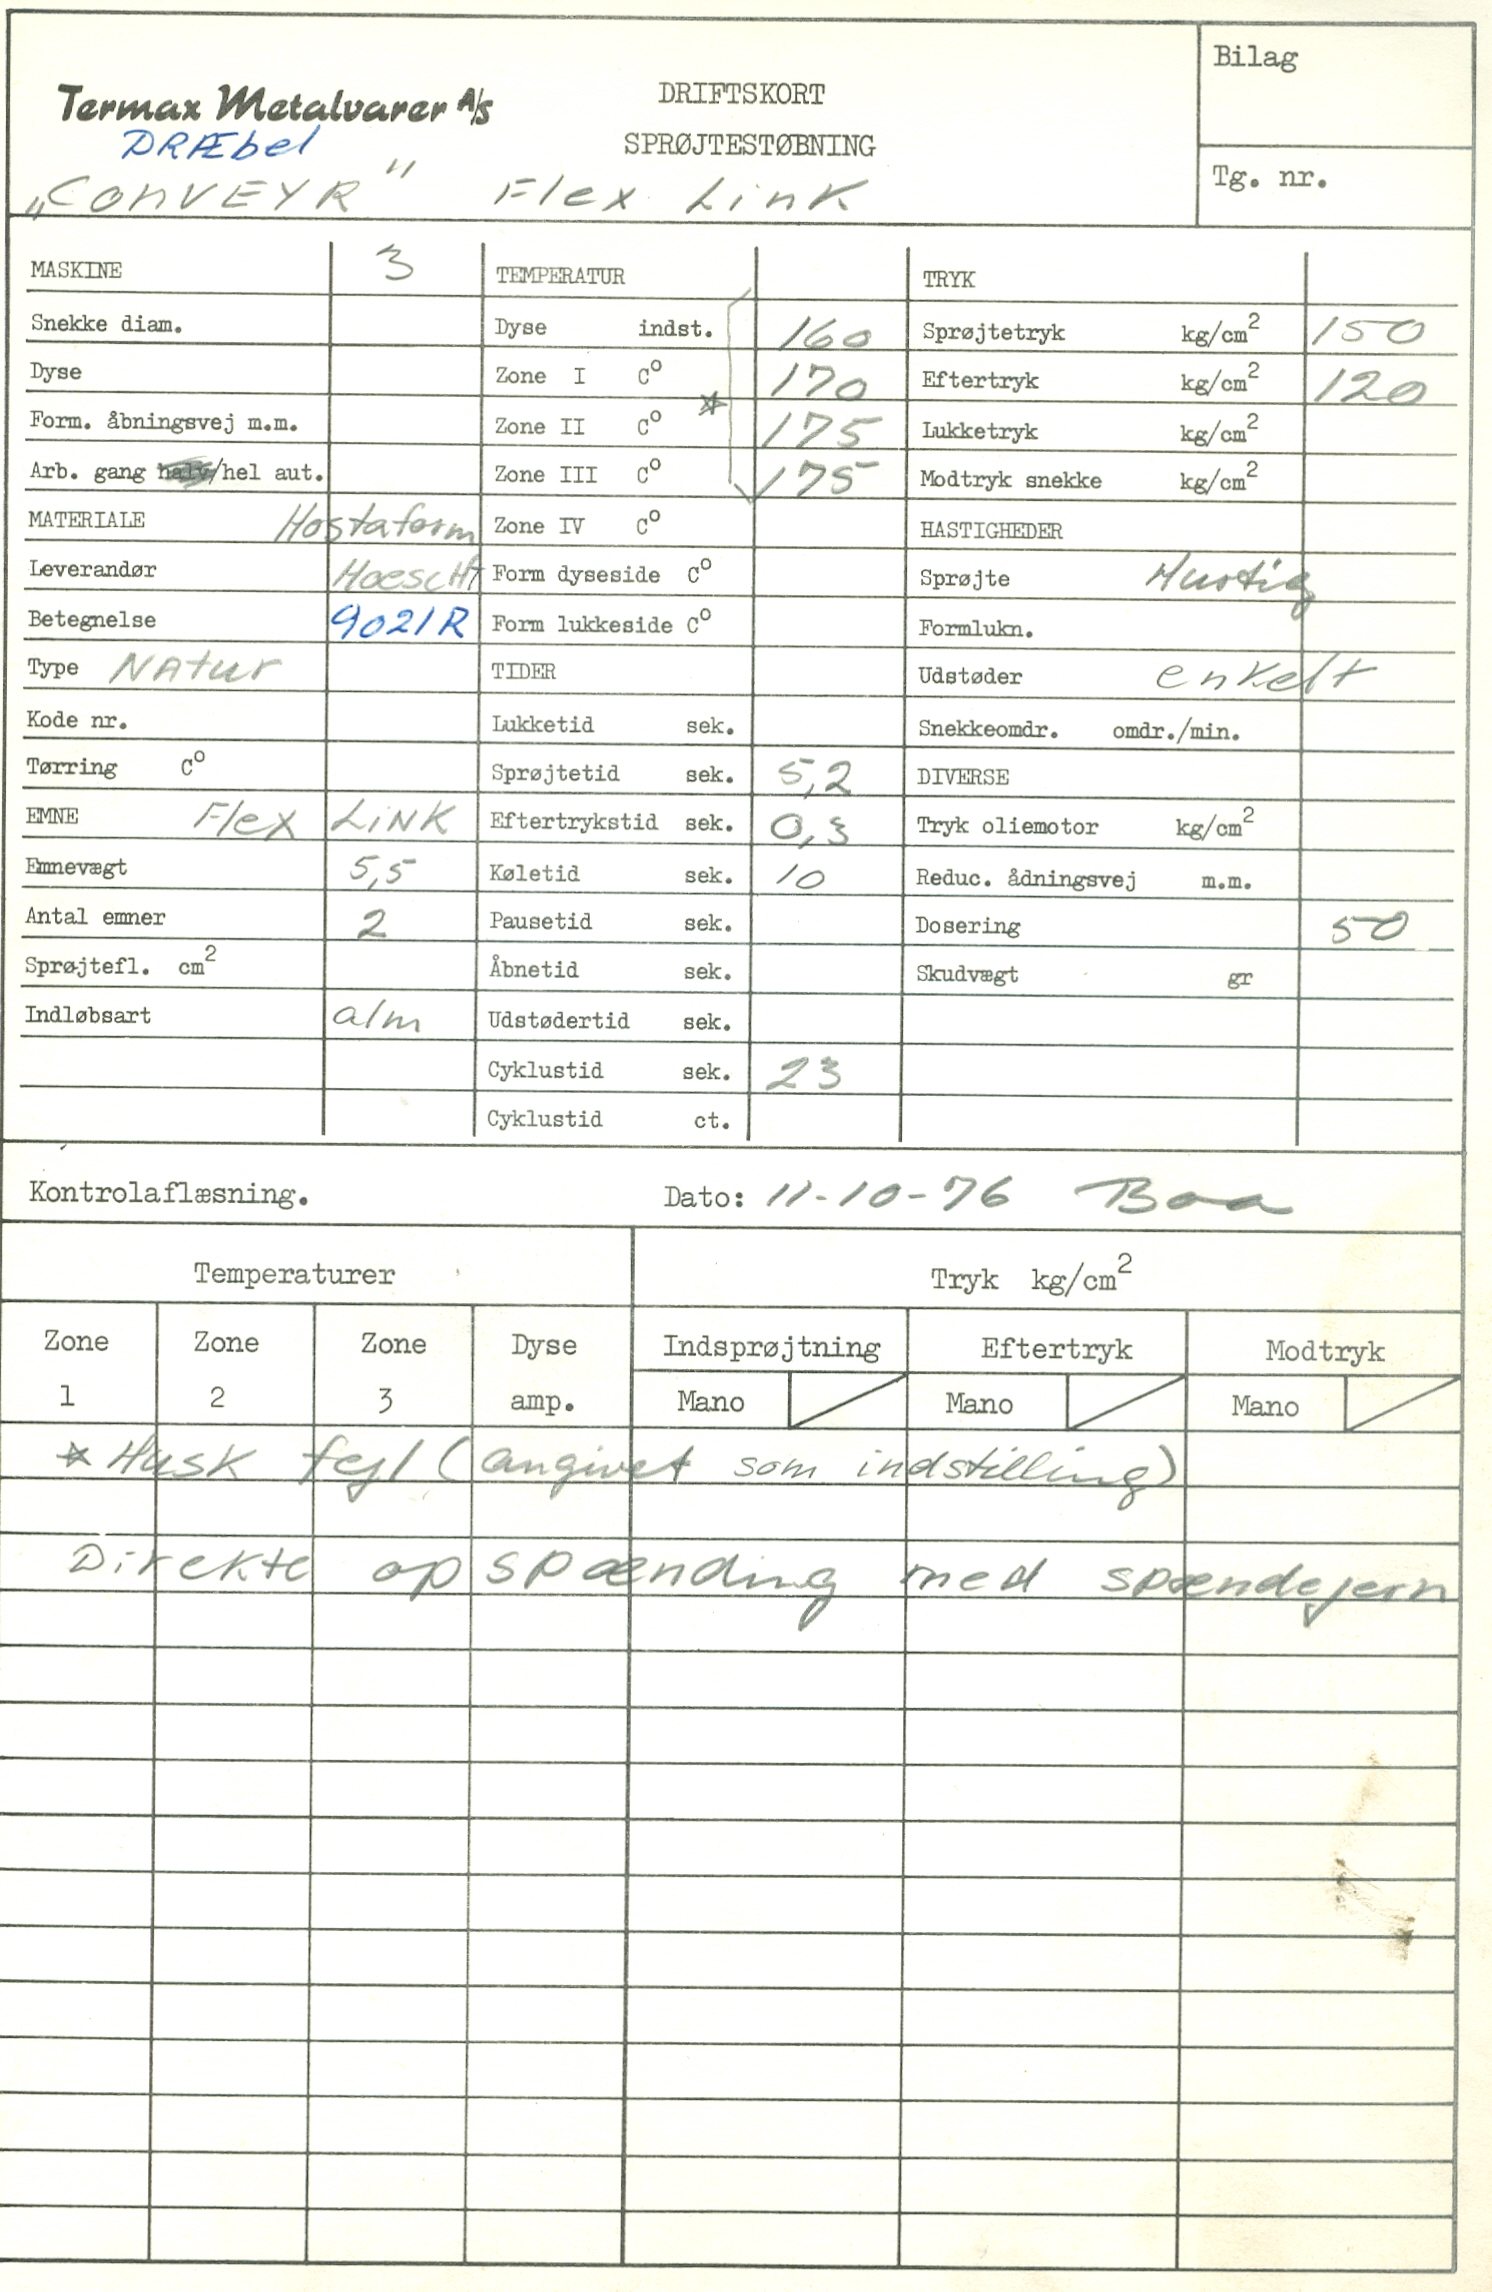 Bilag
Termax Metalvarer A/S
DRIFTSKORT
DRÆbel
SPRØJTESTØBNING
Tg. nr.
„CONVEYR" Flex Link
MASKINE 3
Snekke diam.
Dyse
Form. åbningsvej m.m.
Arb. gang halv/hel aut.
MATERIALE Hostaform
Leverandør HoescHt
Betegnelse 9021R
Type NAtur
Kode nr.
Tørring C°
EMNE Flex LiNK
Emnevægt 5,5
Antal emner 2
Sprøjtefl. cm²
Indløbsart alm
TEMPERATUR
Dyse indst. 160
Zone I C° 170
Zone II C° 175
Zone III C° 175
Zone IV C°
Form dyseside C°
Form lukkeside C°
TIDER
Lukketid sek.
Sprøjtetid sek. 5,2
Eftertrykstid sek. 0,3
Køletid sek. 10
Pausetid sek.
Åbnetid sek.
Udstødertid sek.
Cyklustid sek. 23
Cyklustid ct.
TRYK
Sprøjtetryk kg/cm² 150
Eftertryk kg/cm² 120
Lukketryk kg/cm²
Modtryk snekke kg/cm²
HASTIGHEDER
Sprøjte Hurtig
Formlukn.
Udstøder enkelt
Snekkeomdr. omdr./min.
DIVERSE
Tryk oliemotor kg/cm²
Reduc. ådningsvej m.m.
Dosering 50
Skudvægt gr
Kontrolaflæsning. Dato: 11-10-76 Boa
Temperaturer Tryk kg/cm²
Zone Zone Zone Dyse Indsprøjtning Eftertryk Modtryk
1 2 3 amp. Mano Mano Mano
* Husk fejl (angivet som indstilling)
Direkte opspænding med spændejern